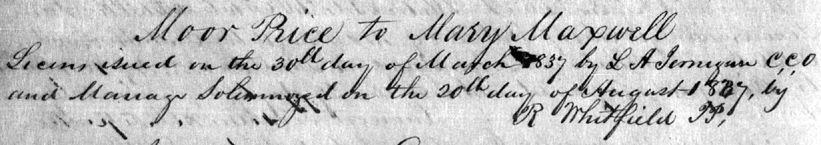 Moor Price to Mary Maxwell
Licens issued on the 30th day of March 1837 by L A Jernigan C,C,O
and Marriage Solemnized on the 20th day of August 1837, by
R Whitfield JP,